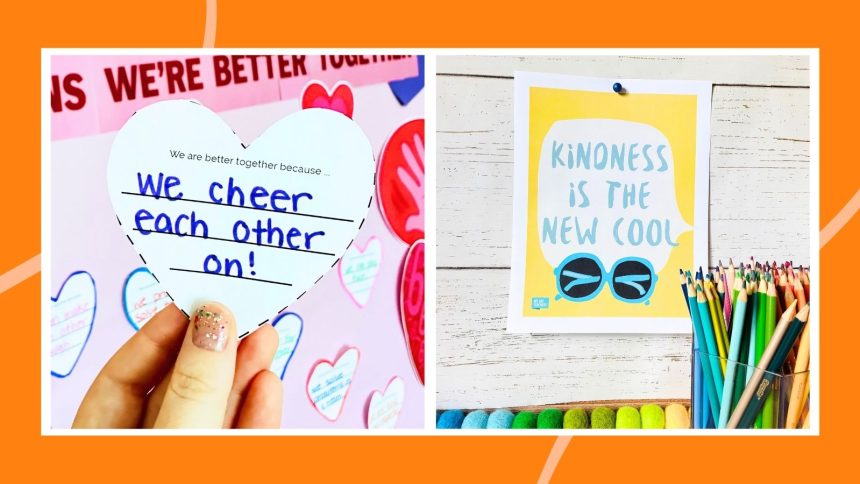 NS WE'RE BETTER TOGETHER
We are better together because ...
We cheer
each other
on!
KINDNESS
IS THE
NEW COOL
WE ARE
TEACHERS